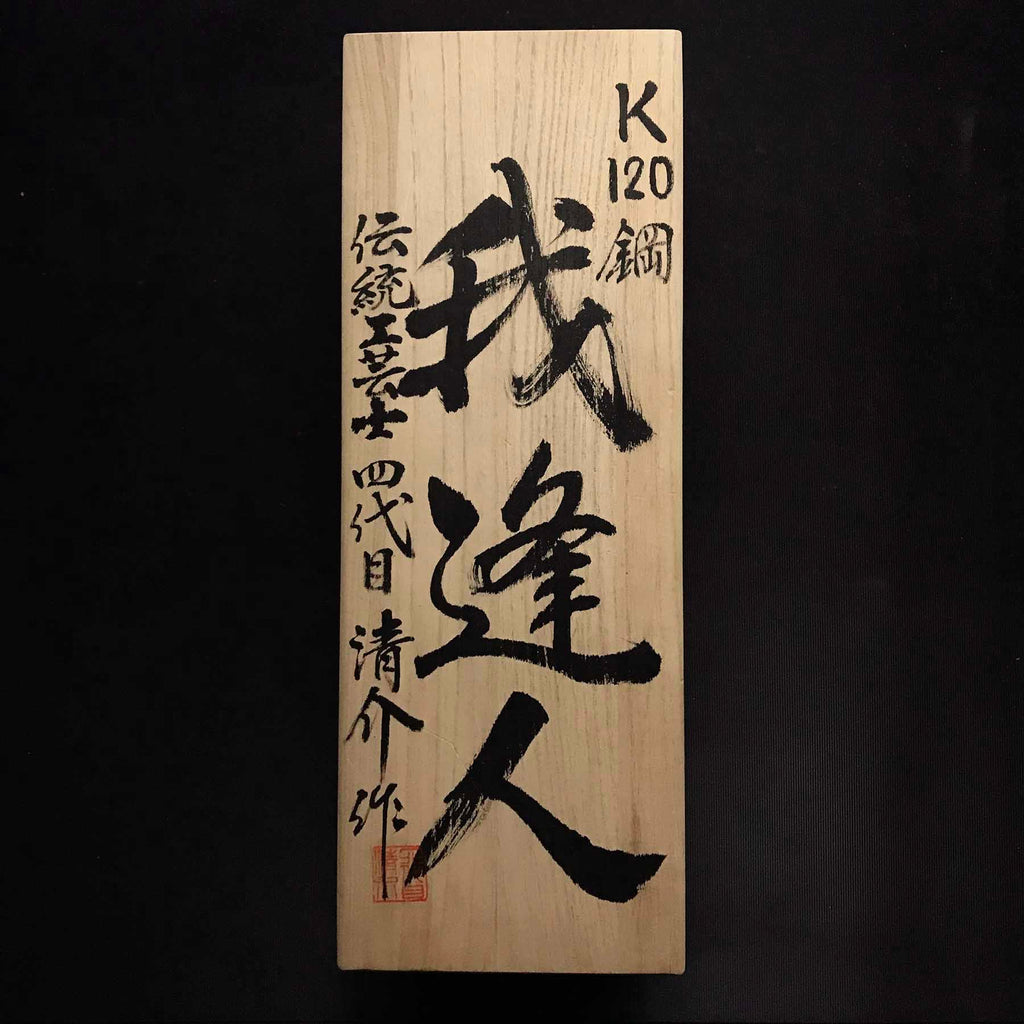 K120鋼
我逢人
伝統工芸士 四代目 清介 作